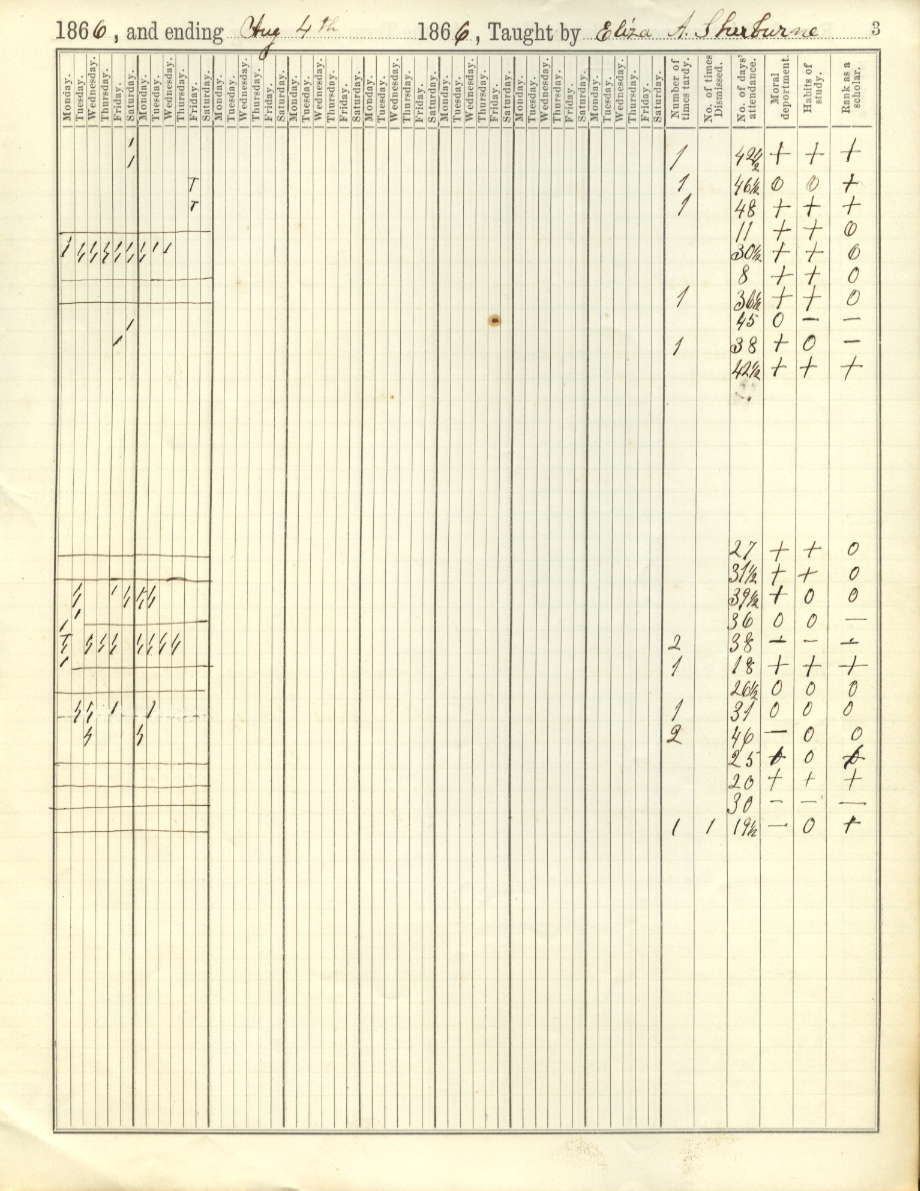 1866, and ending Aug 4th 1866, Taught by Eliza A. Sherburne 3
Monday. Tuesday. Wednesday. Thursday. Friday. Saturday. Monday. Tuesday. Wednesday. Thursday. Friday. Saturday. Monday. Tuesday. Wednesday. Thursday. Friday. Saturday. Monday. Tuesday. Wednesday. Thursday. Friday. Saturday. Monday. Tuesday. Wednesday. Thursday. Friday. Saturday. Monday. Tuesday. Wednesday. Thursday. Friday. Saturday. Monday. Tuesday. Wednesday. Thursday. Friday. Saturday. Monday. Tuesday. Wednesday. Thursday. Friday. Saturday. Number of times tardy. No. of times Dismissed. No. of days' attendance. Moral deportment. Habits of study. Rank as a scholar.
1 42½ + + +
T 1 46½ 0 0 +
T 1 48 + + +
11 + + 0
30½ + + 0
8 + + 0
1 36½ + + 0
45 0 — —
1 38 + 0 —
42½ + + +
27 + + 0
31½ + + 0
39½ + 0 0
36 0 0 —
T 2 38 — — —
1 18 + + +
26½ 0 0 0
1 31 0 0 0
2 46 — 0 0
25 0
20 + + +
30 — — —
1 1 19½ — 0 +